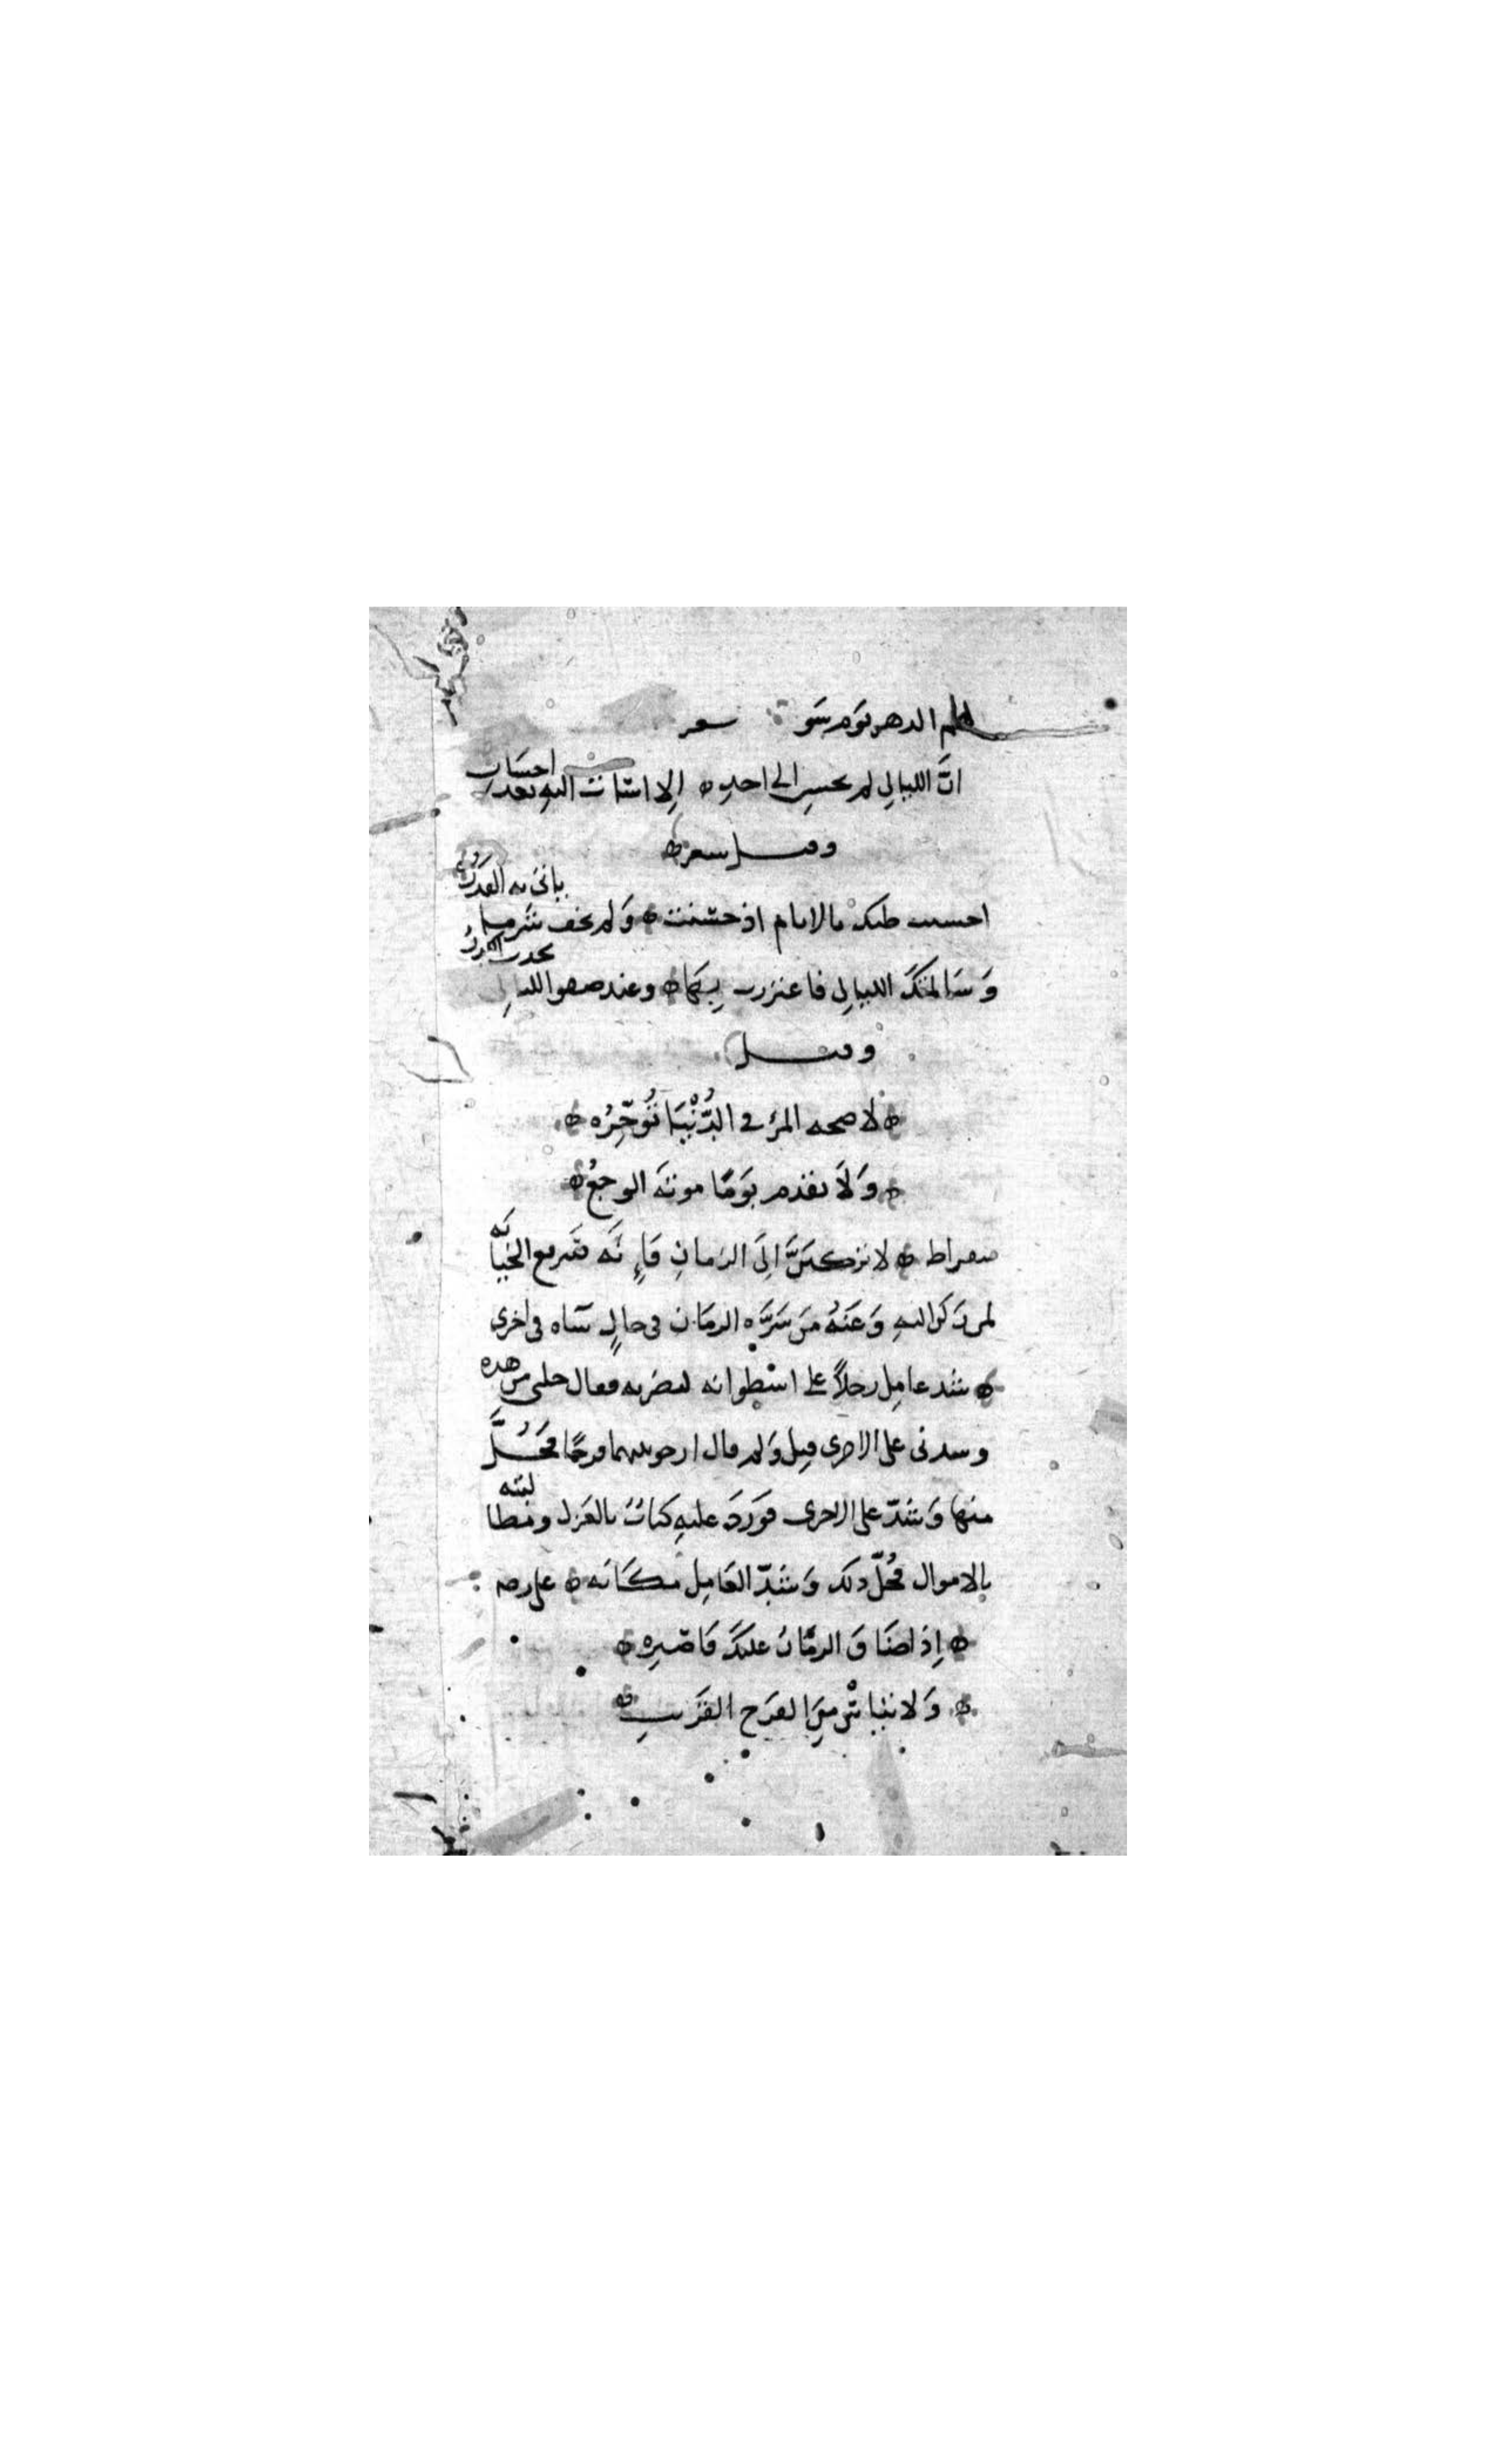 لهم الدهر يوم سو شعر
انّ الليالي لم تحسن الى احدٍ الا اسات اليه بعد احسان
وقيل شعر
احسنت ظنك بالايام اذ حسنت وَلم تخف شر ما ياتى به القدرُ
وَسَالمتكَ الليالي فاغتررت بِهَا وعند صفو الليالِي يحدث الكدرُ
وقيل
لا صحه المرء في الدُّنْيَا تُؤخّرُه
وَلَا يقدم يَومًا موتَه الوجعُ
سقراط لا تركننَّ اِلَى الزمان فَاِنَّه سَريع الخيَانَه
لمن رَكن اليهِ وَعَنهُ مَن سَرَّه الزمَان في حالٍ سَآه في اخرى
شد عامِل رجلاً على اسطوانه ليضربه فقال حلنى من هذه
وشدنى على الاخرى قيل وَلم قال ارجو بينهما فرجًا فحُلَّ
منها وَشدّ على الاخرى فوَرَدَ عليهِ كتابٌ بالعَزل ومطالبته
بالاموال فحُلّ ذلك وَشُدّ العَامِل مكَانَه على رضه
اِذا ضَاق الزمَانُ عليكَ فَاصْبِره
وَلا تيْاسْ مِنَ الفرَج القَرَيبِ